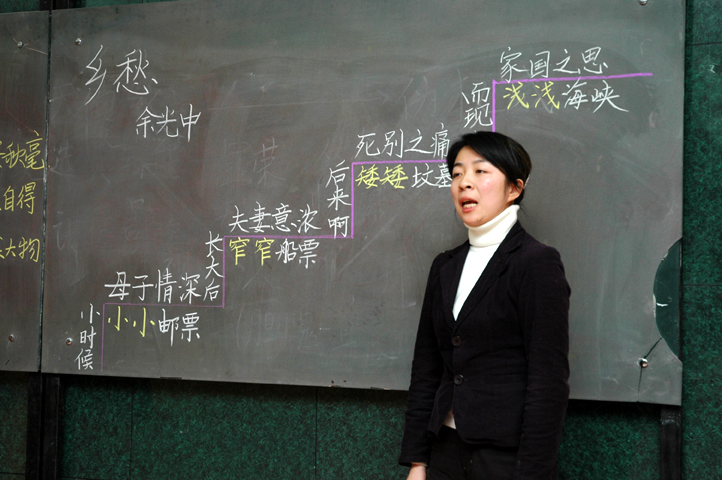 乡愁
余光中
小时候
母子情深
小小邮票
长大后
夫妻意浓
窄窄船票
后来啊
死别之痛
矮矮坟墓
而现
家国之思
浅浅海峡
秋毫
自得
大物